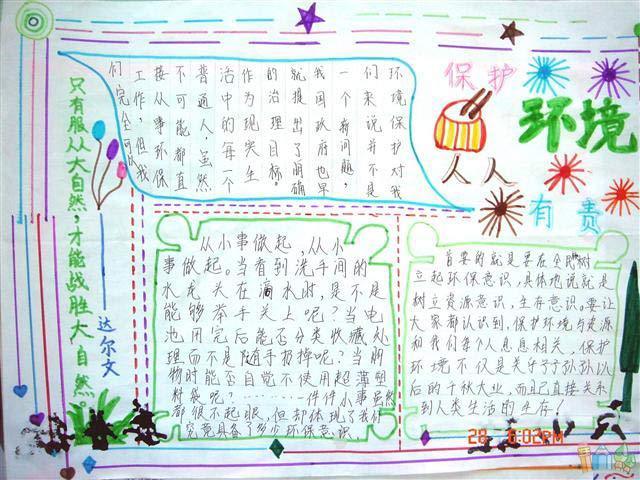 保护
环境
人人
有责
环境保护对我
们来说并不是
一个新问题，
我国政府也早
就提出了明确
的治理目标。
作为现实生
活中的每一个
普通人，虽然
不可能都直
接从事环保
工作，但我
们完全可以
只有服从大自然，才能战胜大自然
达尔文
从小事做起，从小
事做起。当看到洗手间的
水龙头在滴水时，是不是
能够举手关上呢？当电
池用完后能否分类收藏处
理而不是随手扔掉呢？当购
物时能否自觉不使用超薄塑
料袋呢？………一件件小事虽然
都很不起眼，但却体现了我们
究竟具备了多少环保意识。
首要的就是要在全民树
立起环保意识，具体地说就是
树立资源意识、生存意识。要让
大家都认识到，保护环境与资源
和我们每个人息息相关，保护
环境不仅是关乎子子孙孙以
后的千秋大业，而且已直接关系
到人类生活的生存！
28 6:02PM